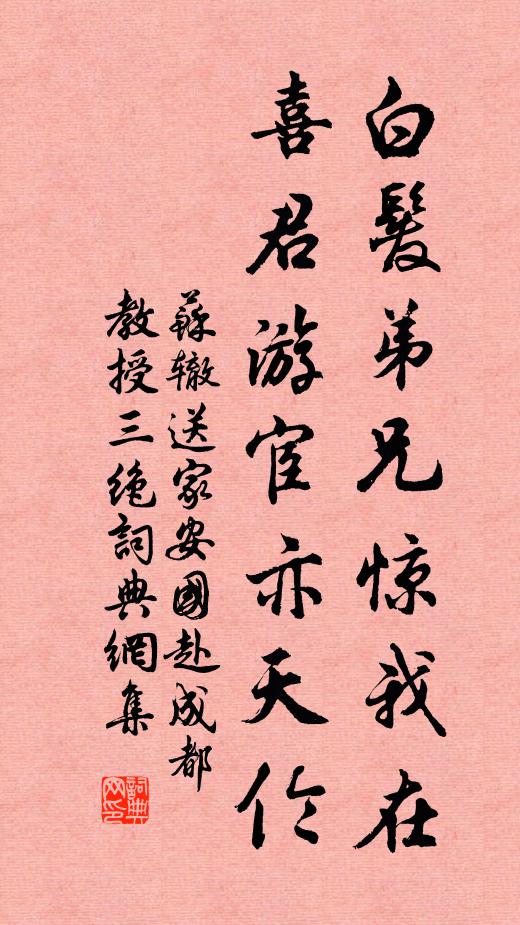 白髮弟兄惊我在
喜君游宦亦天伦
蘇辙送家安國赴成都
教授三绝詞典網集
詞典
网印